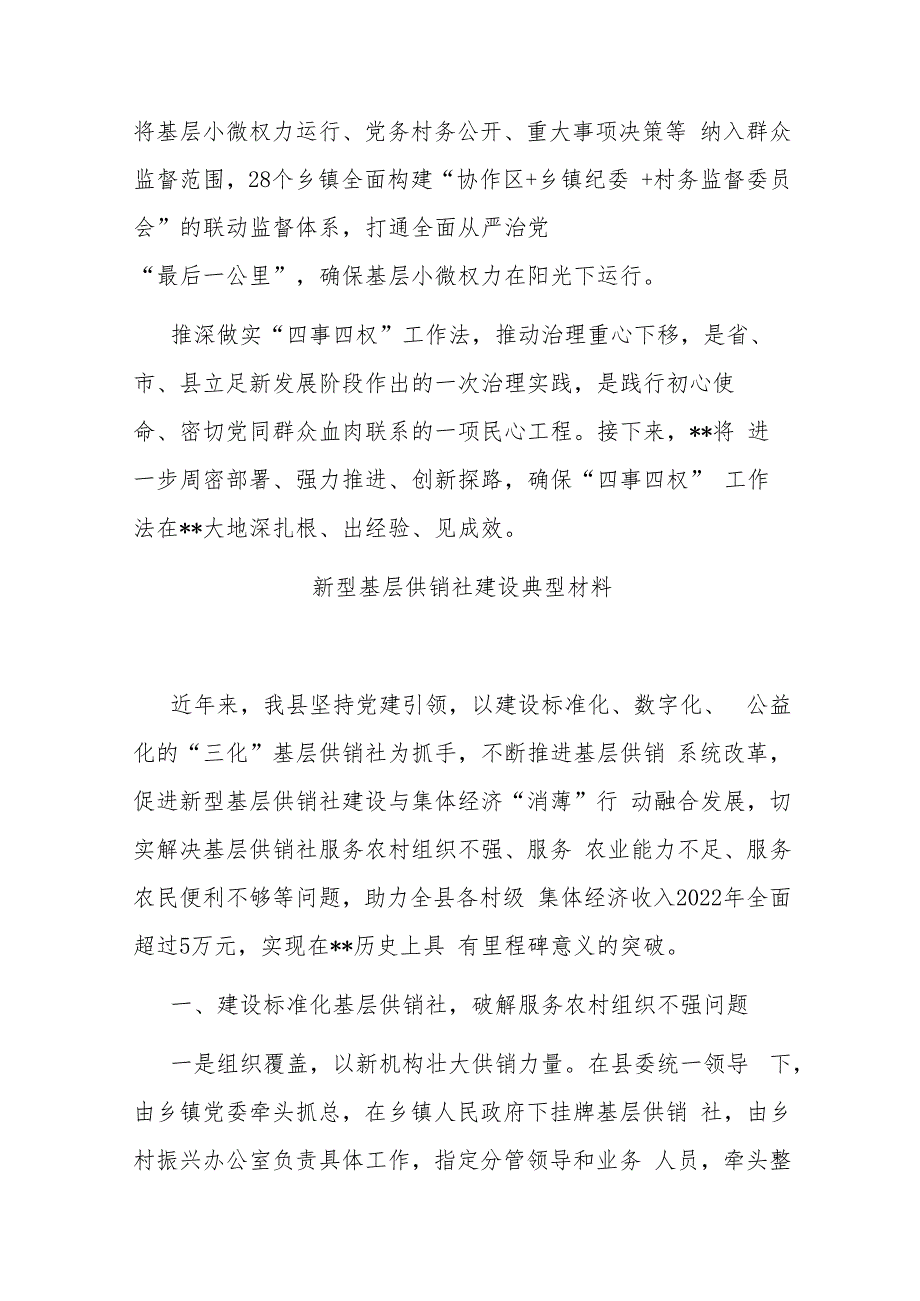 将基层小微权力运行、党务村务公开、重大事项决策等 纳入群众
监督范围，28个乡镇全面构建“协作区+乡镇纪委 +村务监督委员
会”的联动监督体系，打通全面从严治党
“最后一公里”，确保基层小微权力在阳光下运行。
推深做实“四事四权”工作法，推动治理重心下移，是省、
市、县立足新发展阶段作出的一次治理实践，是践行初心使
命、密切党同群众血肉联系的一项民心工程。接下来，**将 进
一步周密部署、强力推进、创新探路，确保“四事四权” 工作
法在**大地深扎根、出经验、见成效。
新型基层供销社建设典型材料
近年来，我县坚持党建引领，以建设标准化、数字化、 公益
化的“三化”基层供销社为抓手，不断推进基层供销 系统改革，
促进新型基层供销社建设与集体经济“消薄”行 动融合发展，切
实解决基层供销社服务农村组织不强、服务 农业能力不足、服务
农民便利不够等问题，助力全县各村级 集体经济收入2022年全面
超过5万元，实现在**历史上具 有里程碑意义的突破。
一、建设标准化基层供销社，破解服务农村组织不强问题
一是组织覆盖，以新机构壮大供销力量。在县委统一领导 下，
由乡镇党委牵头抓总，在乡镇人民政府下挂牌基层供销 社，由乡
村振兴办公室负责具体工作，指定分管领导和业务 人员，牵头整